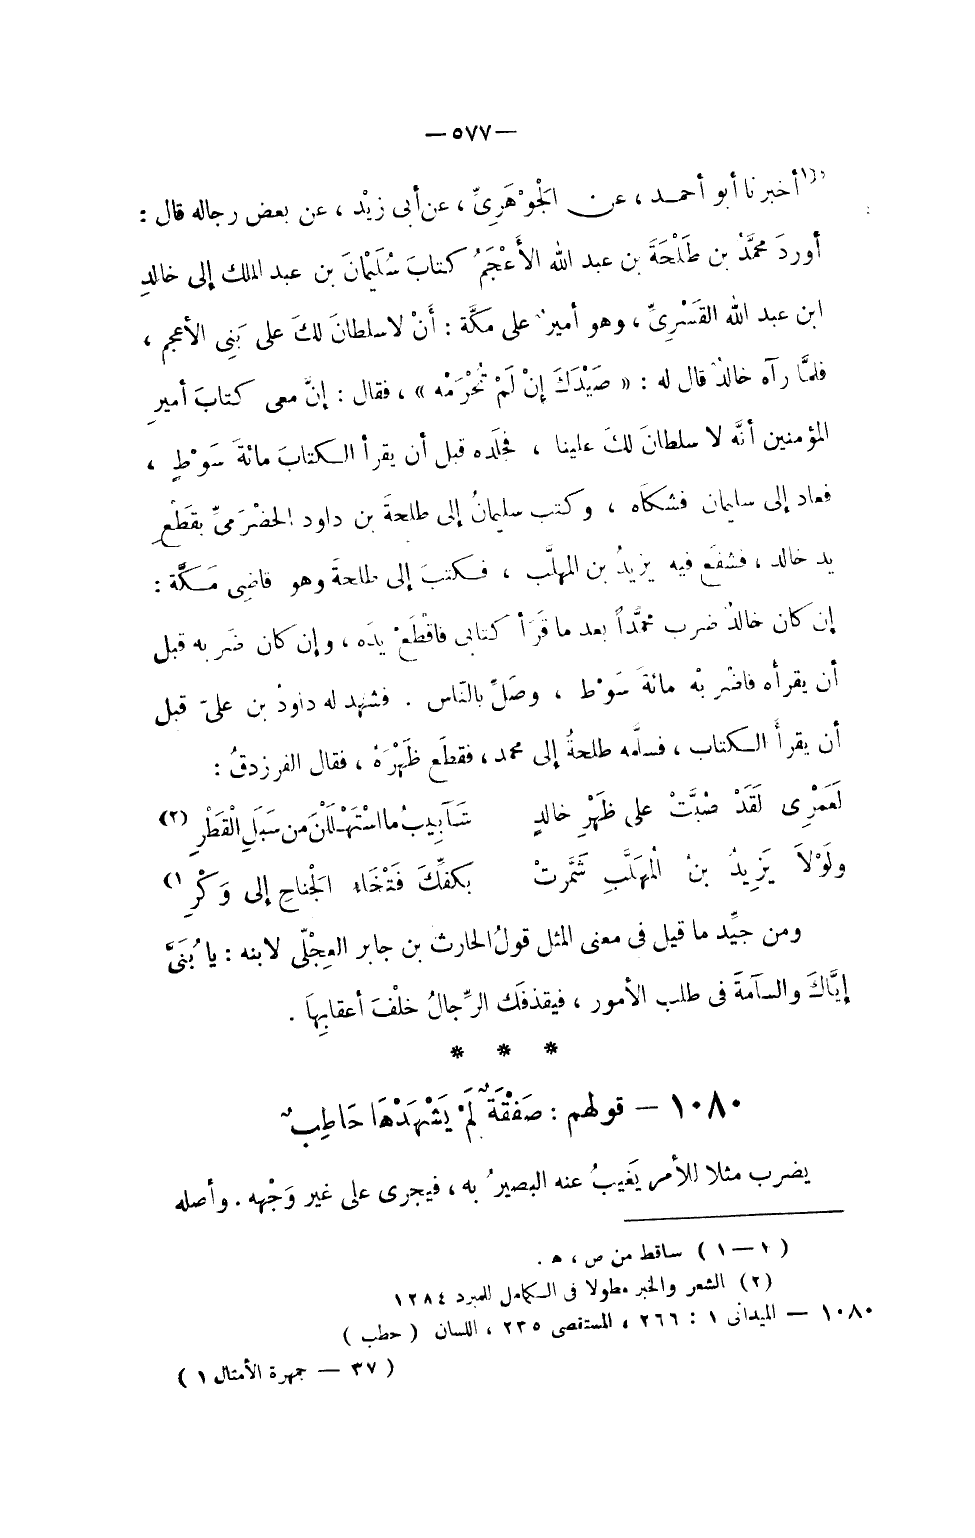 —٥٧٧—
(١) أخبرنا أبو أحمد ، عن الجَوْهَرِىِّ ، عن أبى زيْد ، عن بعض رجاله قال :
أوردَ محمَّدُ بن طَلْحَةَ بن عبد الله الأَعْجَمُ كتابَ سُلَيْمَانَ بن عبد الملك إلى خالدِ
ابن عبد الله القَسْرِىِّ ، وهو أميرٌ على مكَّة : أنْ لا سلطانَ لكَ على بَنِى الأعجم ،
فلمَّا رآه خالدٌ قال له : « صَيْدَكَ إنْ لَمْ تُحْرَمْه » ، فقال : إنَّ معى كتابَ أميرِ
المؤمنين أنَّه لا سلطانَ لكَ علينا ، فجلَده قبل أن يقرأ الكتابَ مائةَ سَوْطٍ ،
فعاد إلى سليمان فشكاه ، وكتب سليمانُ إلى طلحةَ بن داود الحضْرَمىِّ بقَطْعِ
يد خالد ، فشفَع فيه يزيدُ بن المهلَّب ، فكتبَ إلى طلحةَ وهو قاضِى مَكَّة :
إن كان خالدٌ ضرب محمَّداً بعد ما قَرَأ كتابى فاقْطَعْ يدَه ، وإن كان ضَربه قبل
أن يقرأه فاضْرِبْه مائةَ سَوْط ، وصَلِّ بالنّاس . فشهد له داودُ بن علىّ قبل
أن يقرأَ الكتاب ، فسلَّمه طلحةُ إلى محمد ، فقطَع ظَهْرَهُ ، فقال الفرزدقُ :
لَعَمْرِى لَقَدْ صُبَّتْ على ظَهْرِ خالدٍ شَآبِيبُ ما اسْتَهْلَلْنَ من سَبَلِ الْقَطْرِ (٢)
ولَوْلاَ يَزِيدُ بنُ الْمهَلَّبِ شَمَّرتْ بكفِّكَ فَتْخَاءُ الجْناحِ إلى وَكْرِ (١)
ومن جيِّد ما قيل فى معنى المثل قولُ الحارث بن جابر العِجْلّى لابنه : يا بُنَىَّ
إيَّاكَ والسآمةَ فى طلب الأمور ، فيقذفَك الرِّجالُ خلْفَ أعقابِهاَ .
* * *
١٠٨٠ — قولهم : صَفْقَةٌ لَمْ يَشْهَدْهَا حَاطِبٌ
يضرب مثلا للأمر يَغيبُ عنه البصيرُ به ، فيجرى على غير وَجْهه . وأصله
(١—١) ساقط من ص ، ه .
(٢) الشعر والخبر مطولا فى الكامل للمبرد ١٢٨٤
١٠٨٠ — الميدانى ١ : ٢٦٦ ، المستقصى ٢٣٥ ، اللسان ( حطب )
( ٣٧ — جمهرة الأمثال ١ )